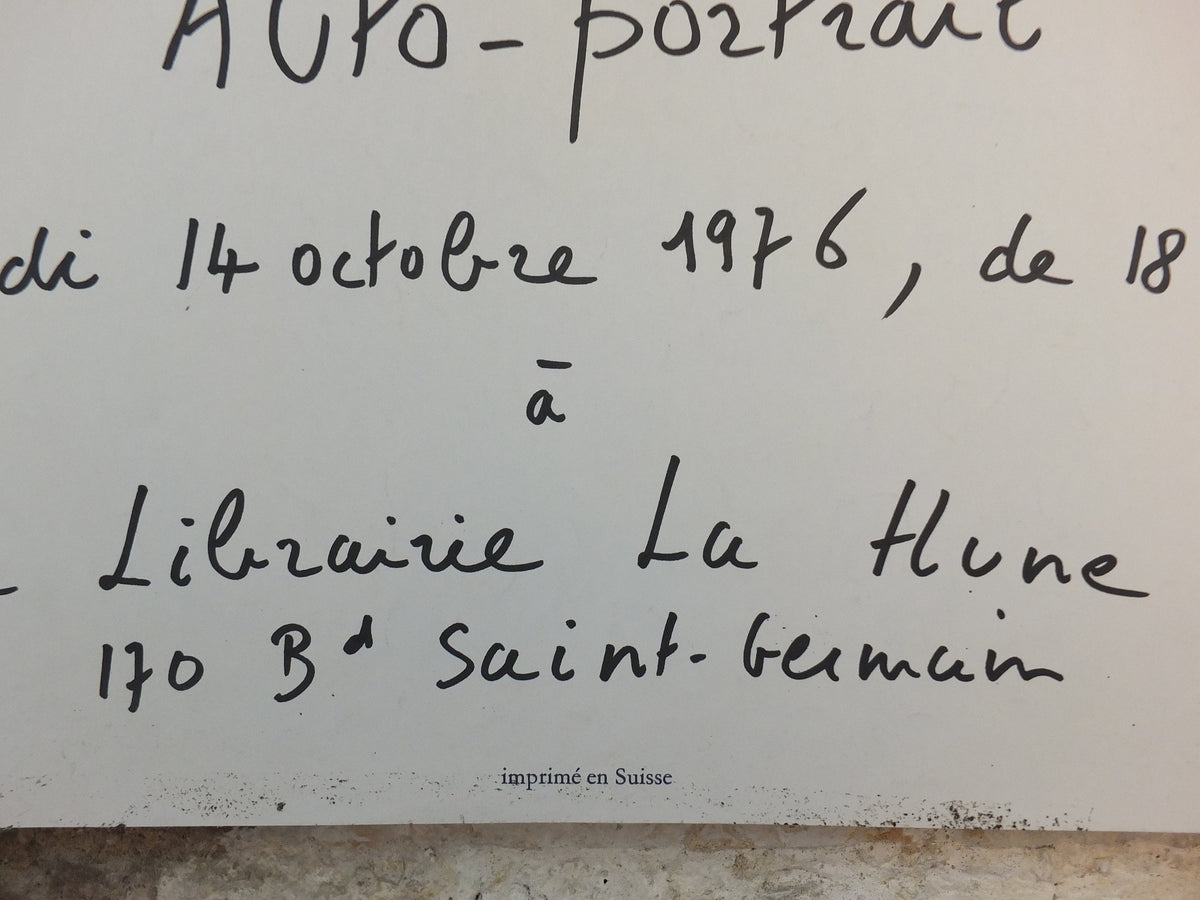 Auto-portrait
di 14 octobre 1976, de 18
à
Librairie La Hune
170 Bd Saint-Germain
imprimé en Suisse